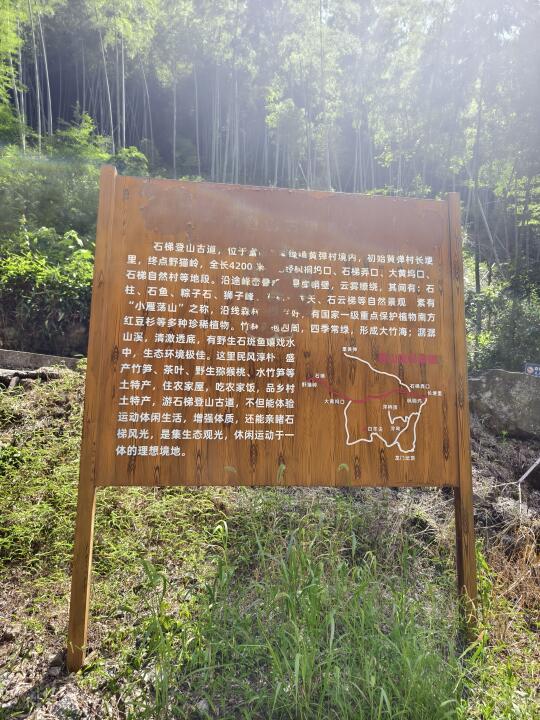 石梯登山古道，位于 黄弹村境内，初始黄弹村长埂
里，终点野猫岭，全长4200 桐坞口、石梯弄口、大黄坞口、
石梯自然村等地段。沿途峰峦叠 壁，云雾缭绕，其间有：石
柱、石鱼、粽子石、狮子峰、 天、石云梯等自然景观 素有
“小雁荡山”之称，沿线森林 好，有国家一级重点保护植物南方
红豆杉等多种珍稀植物，竹 周，四季常绿，形成大竹海；潺潺
山溪，清澈透底，有野生石斑鱼嬉戏水
中，生态环境极佳。这里民风淳朴 盛
产竹笋、茶叶、野生猕猴桃、水竹笋等
土特产，住农家屋，吃农家饭，品乡村
土特产，游石梯登山古道，不但能体验
运动休闲生活，增强体质，还能亲睹石
梯风光，是集生态观光，休闲运动于一
体的理想境地。
石梯
野猫岭
石梯弄口
长埂里
大黄坞口